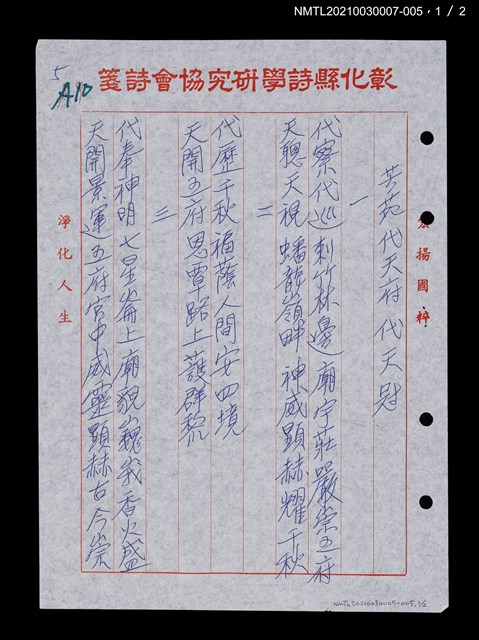 NMTL20210030007-005，1／2
5
A10
彰化縣詩學研究協會詩箋
弘揚國粹
芳苑代天府 代天冠
一
代察代巡刺竹林邊廟宇莊嚴崇五府
天聰天視蟠龍嶺畔神威顯赫耀千秋
二
代歷千秋福蔭人間安四境
天開五府恩覃路上護群黎
三
代奉神明七星崙上廟貌巍峩香火盛
天開景運五府宮中威靈顯赫古今崇
淨化人生
NMTL20210030007-005.1/2